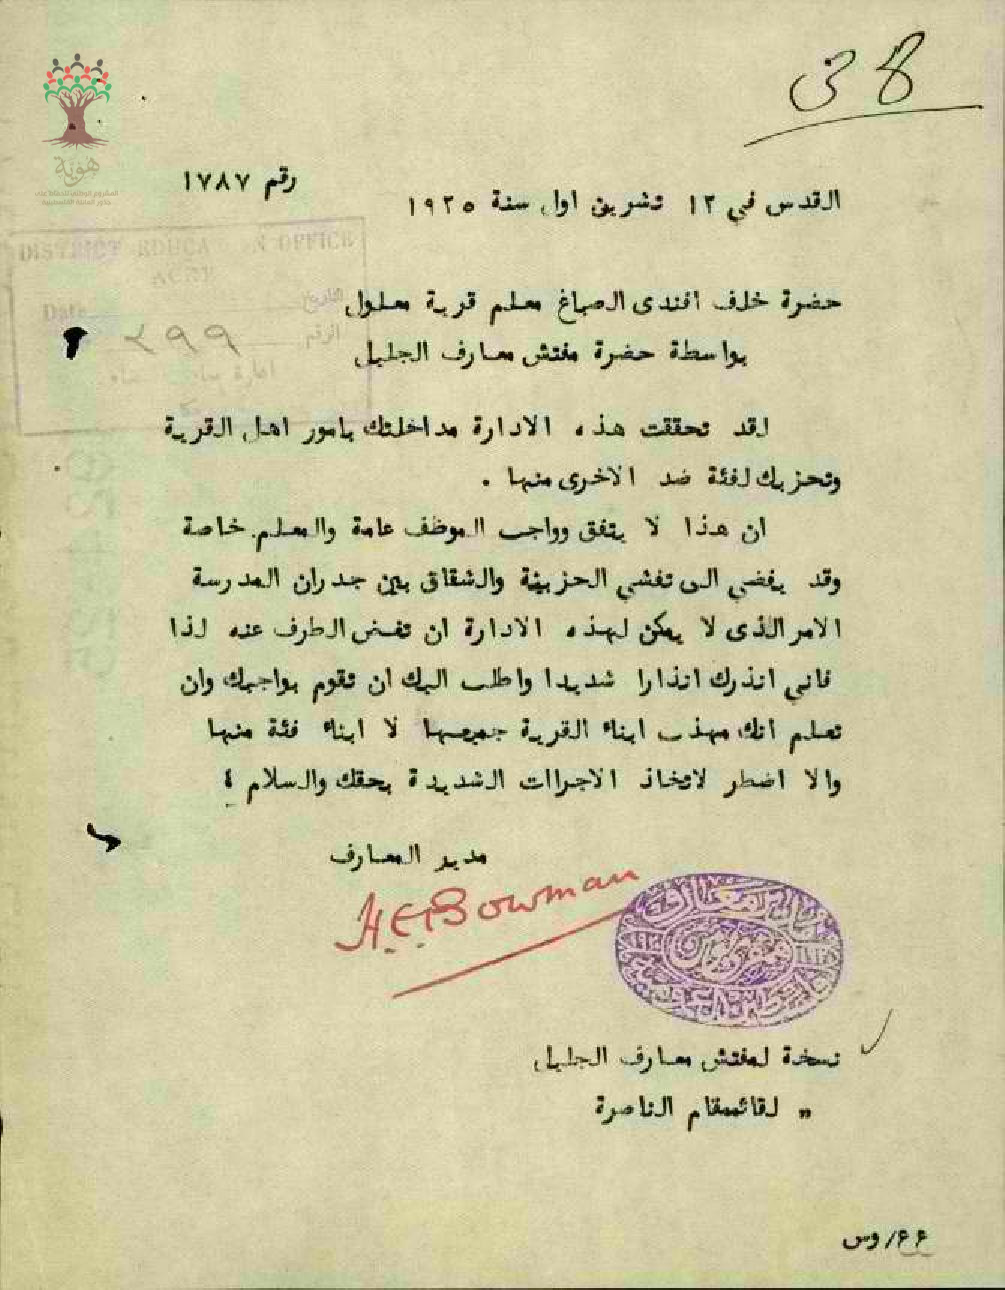 هوية
رقم ١٧٨٧
القدس في ١٢ تشرين اول سنة ١٩٢٥
DISTRICT EDUCATION OFFICE
ACRE
Date
التاريخ
الرقم ٢٩٩
حضرة خلف افندى الصباغ معلم قرية معلول
بواسطة حضرة مفتش معارف الجليل
لقد تحققت هذه الادارة مداخلتك بامور اهل القرية
وتحزبك لفئة ضد الاخرى منها .
ان هذا لا يتفق وواجب الموظف عامة والمعلم خاصة
وقد يفضي الى تفشي الحزبية والشقاق بين جدران المدرسة
الامر الذى لا يمكن لهذه الادارة ان تغض الطرف عنه لذا
فاني انذرك انذارا شديدا واطلب اليك ان تقوم بواجبك وان
تعلم انك مهذب ابناء القرية جميعها لا ابناء فئة منها
والا اضطر لاتخاذ الاجراات الشديدة بحقك والسلام ؛
مدير المعارف
H.E. Bowman
نسخة لمفتش معارف الجليل
" لقائمقام الناصرة